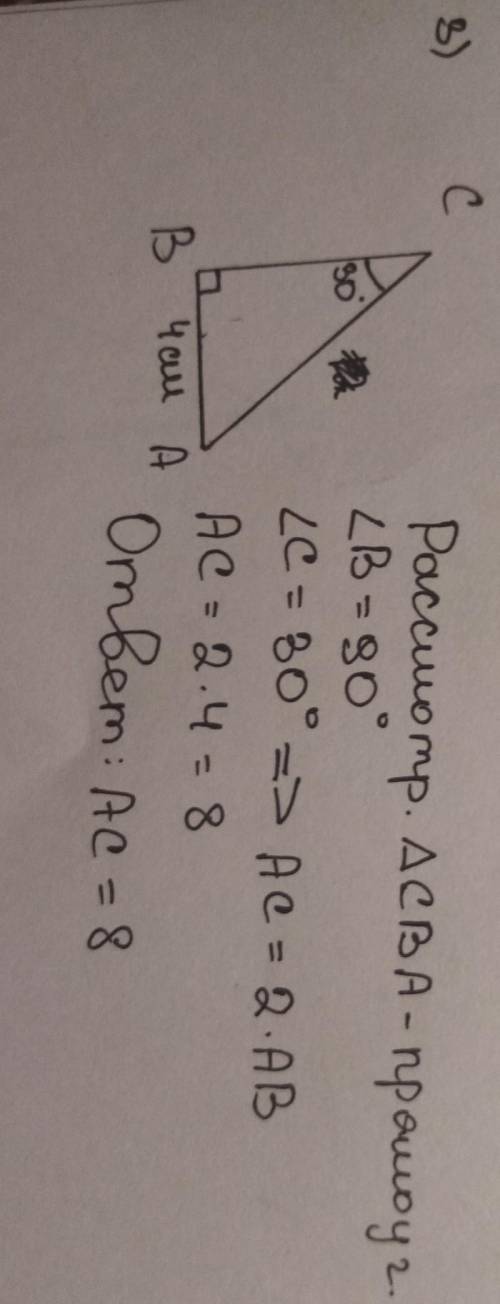 3)
C
30°
B
4 см
A
Рассмотр. △CBA - прямоуг.
∠B = 90°
∠C = 30° => AC = 2·AB
AC = 2·4 = 8
Ответ: AC = 8